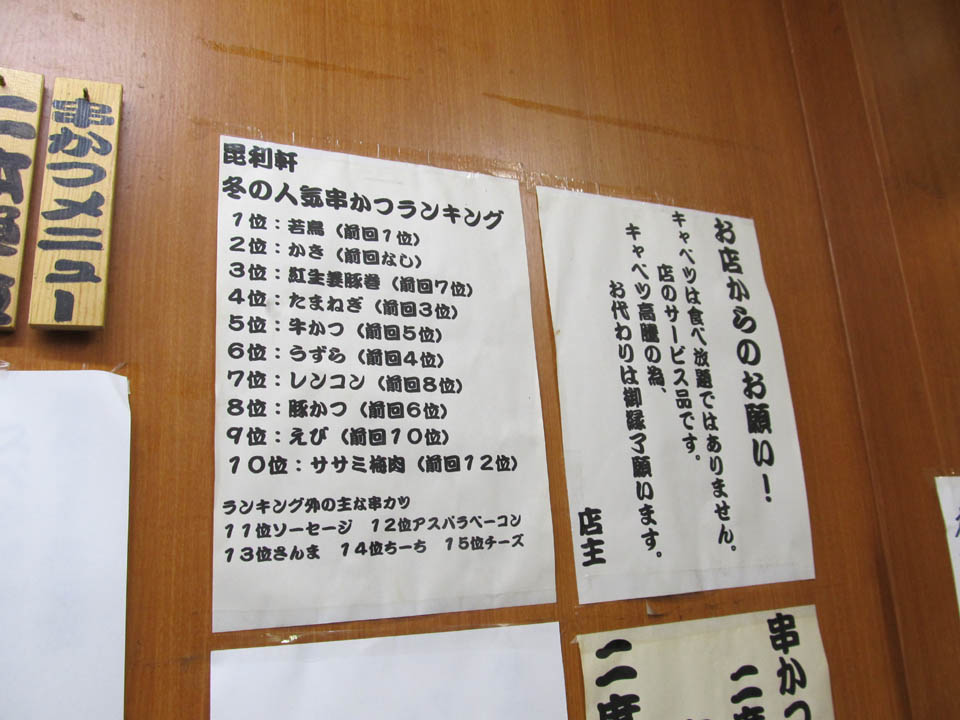 串かつメニュー
昆利軒
冬の人気串かつランキング
1位：若鳥（前回1位）
2位：かき（前回なし）
3位：紅生姜豚巻（前回7位）
4位：たまねぎ（前回3位）
5位：牛かつ（前回5位）
6位：うずら（前回4位）
7位：レンコン（前回8位）
8位：豚かつ（前回6位）
9位：えび（前回10位）
10位：ササミ梅肉（前回12位）
ランキング外の主な串カツ
11位ソーセージ　12位アスパラベーコン
13位さんま　14位ちーち　15位チーズ
お店からのお願い！
キャベツは食べ放題ではありません。
店のサービス品です。
キャベツ高騰の為、
お代わりは御縁了願います。
店主
串かつ
二度
二度